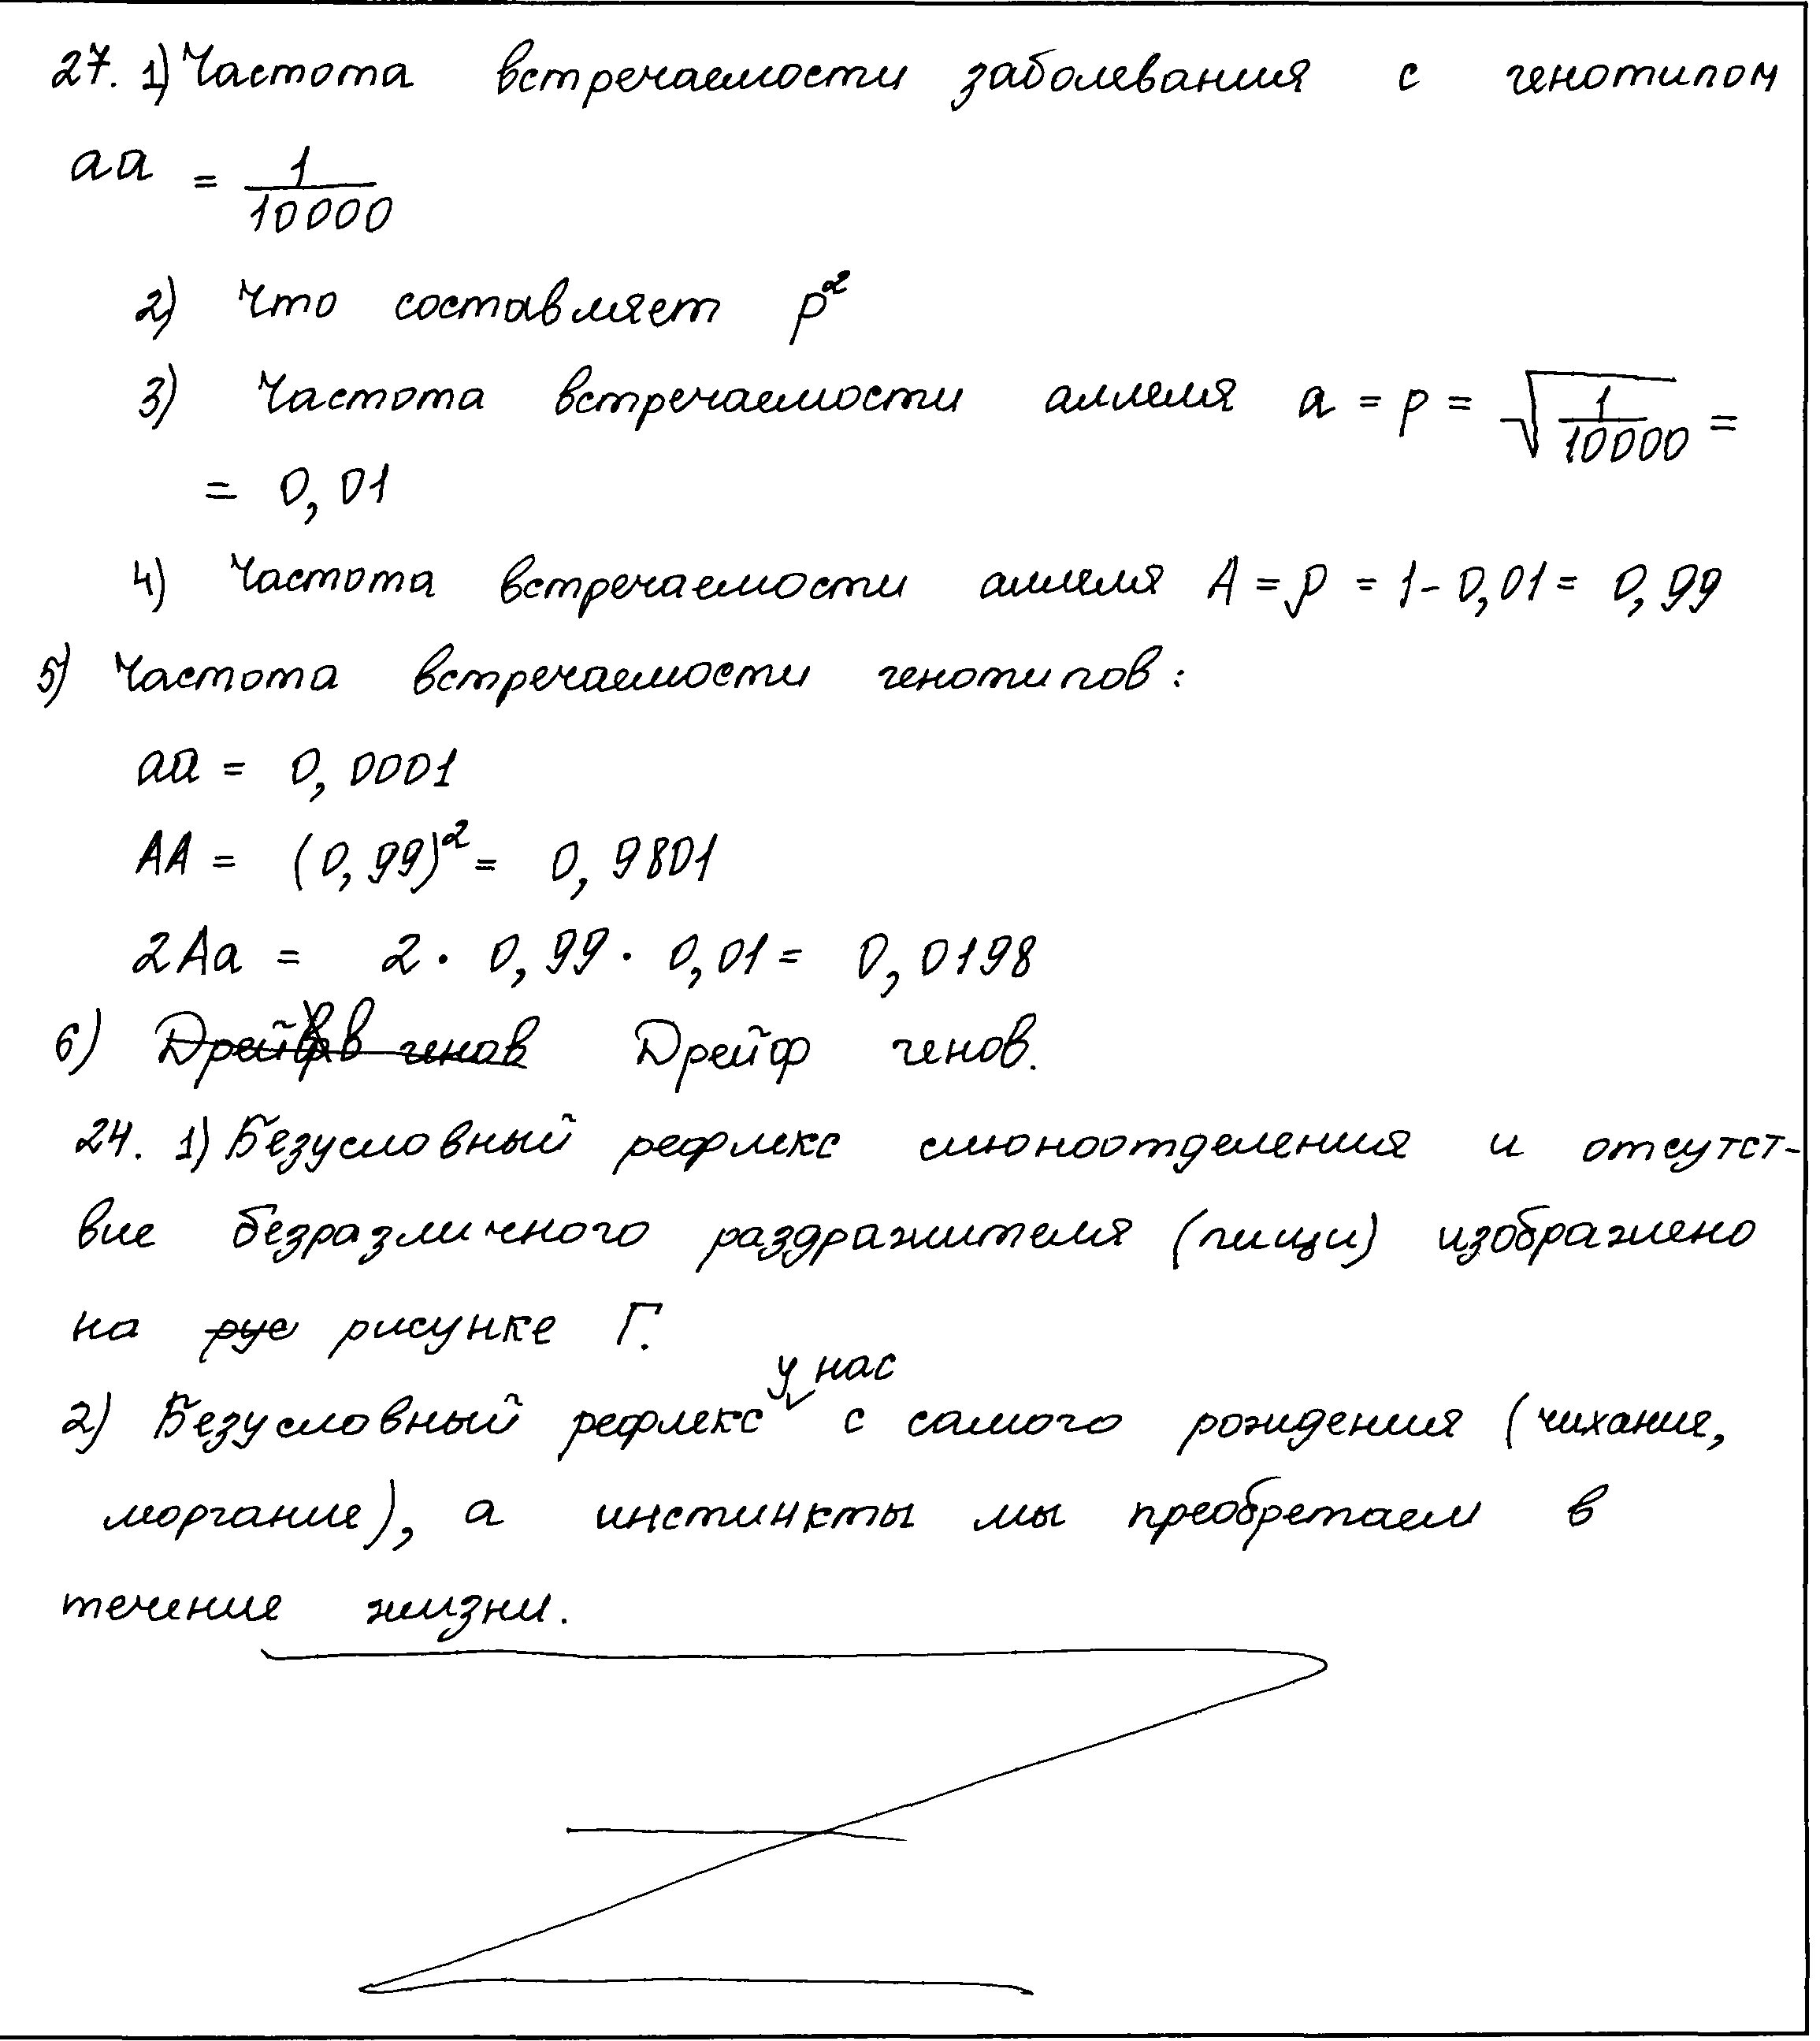 27. 1) Частота встречаемости заболевания с генотипом
аа = 1/10000
2) Что составляет p²
3) Частота встречаемости аллеля а = p = √(1/10000) =
= 0,01
4) Частота встречаемости аллеля А = p = 1 - 0,01 = 0,99
5) Частота встречаемости генотипов:
аа = 0,0001
АА = (0,99)² = 0,9801
2Аа = 2 · 0,99 · 0,01 = 0,0198
6) Дрейф генов.
24. 1) Безусловный рефлекс слюноотделения и отсутст-
вие безразличного раздражителя (пищи) изображено
на рус рисунке Г.
у нас
2) Безусловный рефлекс с самого рождения (чихание,
моргание), а инстинкты мы преобретаем в
течение жизни.